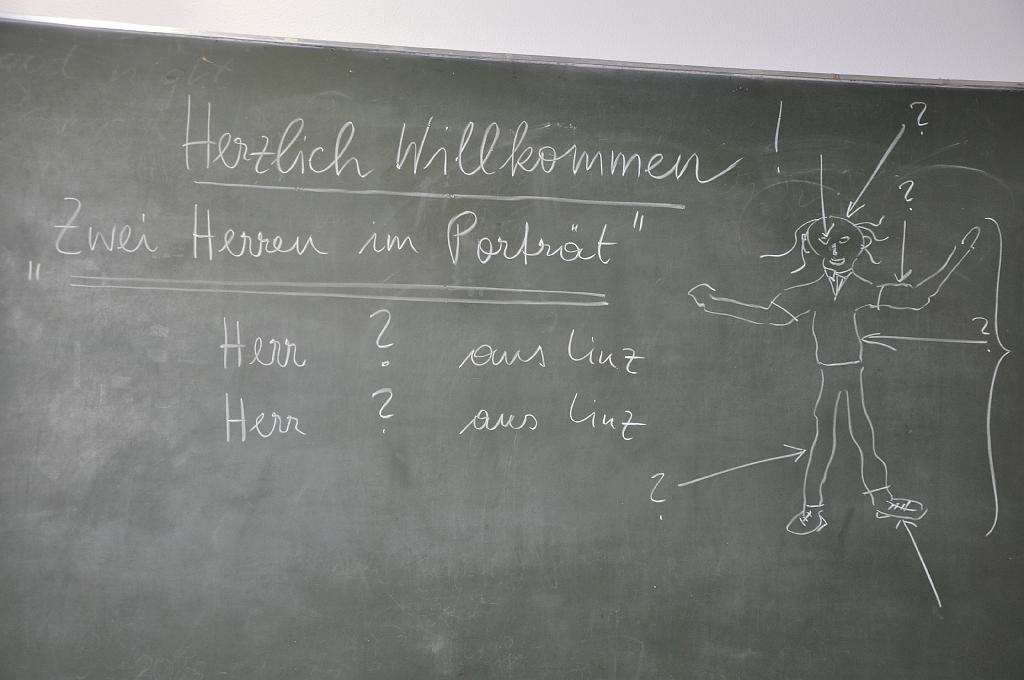 Herzlich Willkommen !
„Zwei Herren im Porträt"
Herr ? aus Linz
Herr ? aus Linz
?
?
?
?